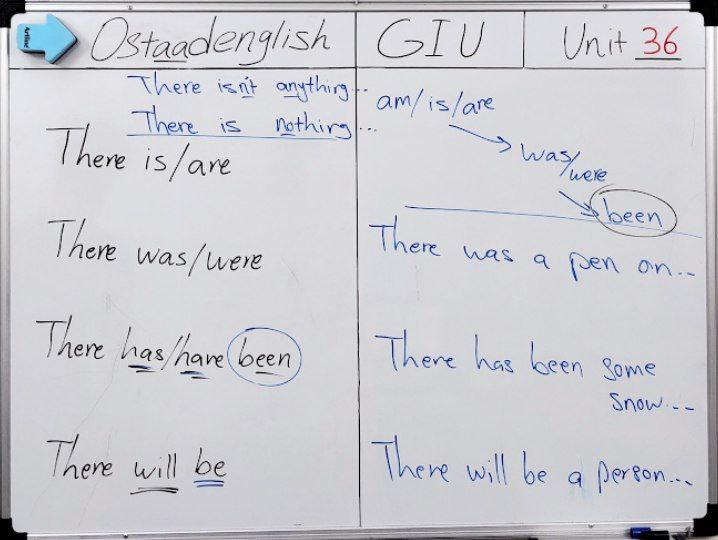 Artline
Ostaadenglish
GIU
Unit 36
There isn't anything...
There is nothing...
There is/are
There was/were
There has/have been
There will be
am/is/are
was/were
been
There was a pen on...
There has been some
snow...
There will be a person...